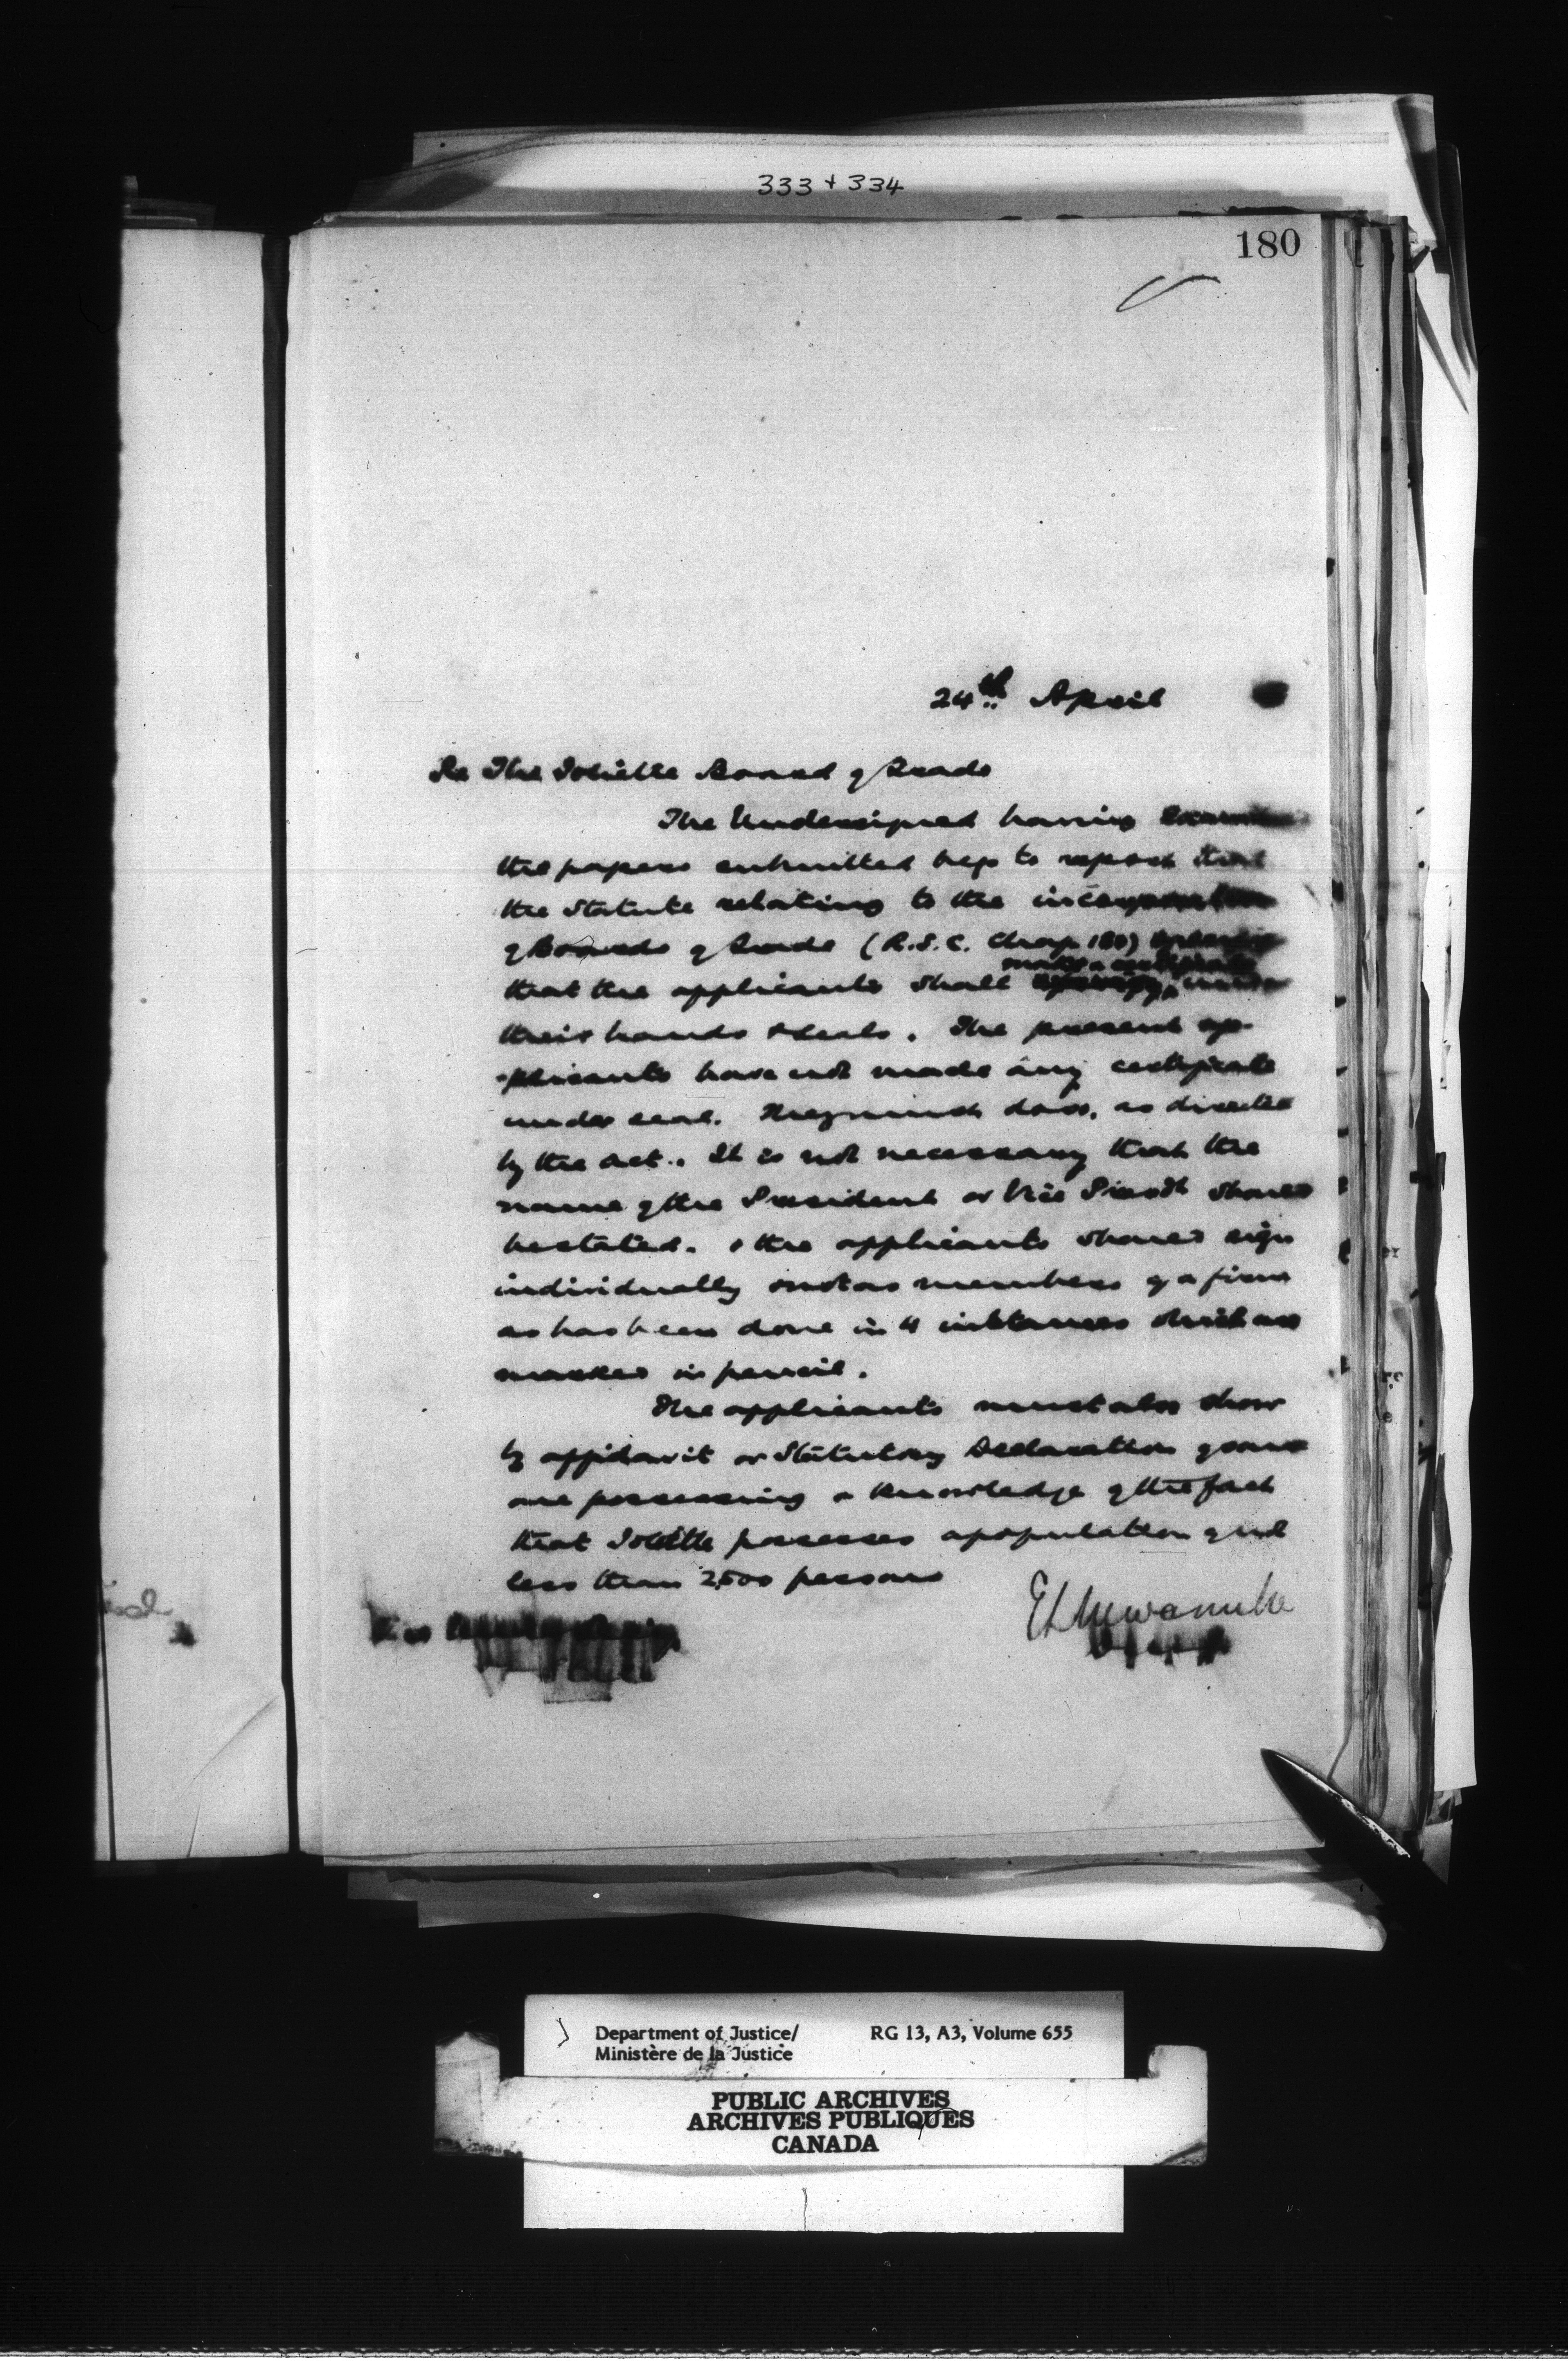 333 + 334
180
24th April
Re The Joliette Board of Trade
The Undersigned having
the papers submitted begs to report that
the Statute relating to the incorporation
of Boards of Trade (R.S.C. Chap 130)
make a certificate
that the applicants shall under
their hands & seals. The present ap-
plicants have not made any certificate
under seal. They must do so, as directed
by the act. It is not necessary that the
name of the President or Vice Presdt should
be stated. & the applicants should sign
individually & not as members of a firm
as has been done in 4 instances which are
marked in pencil.
The applicants must also show
by affidavit or Statutory Declaration of some
one possessing a knowledge of the fact
that Joliette possesses a population of not
less than 2,500 persons
Department of Justice/ RG 13, A3, Volume 655
Ministère de la Justice
PUBLIC ARCHIVES
ARCHIVES PUBLIQUES
CANADA